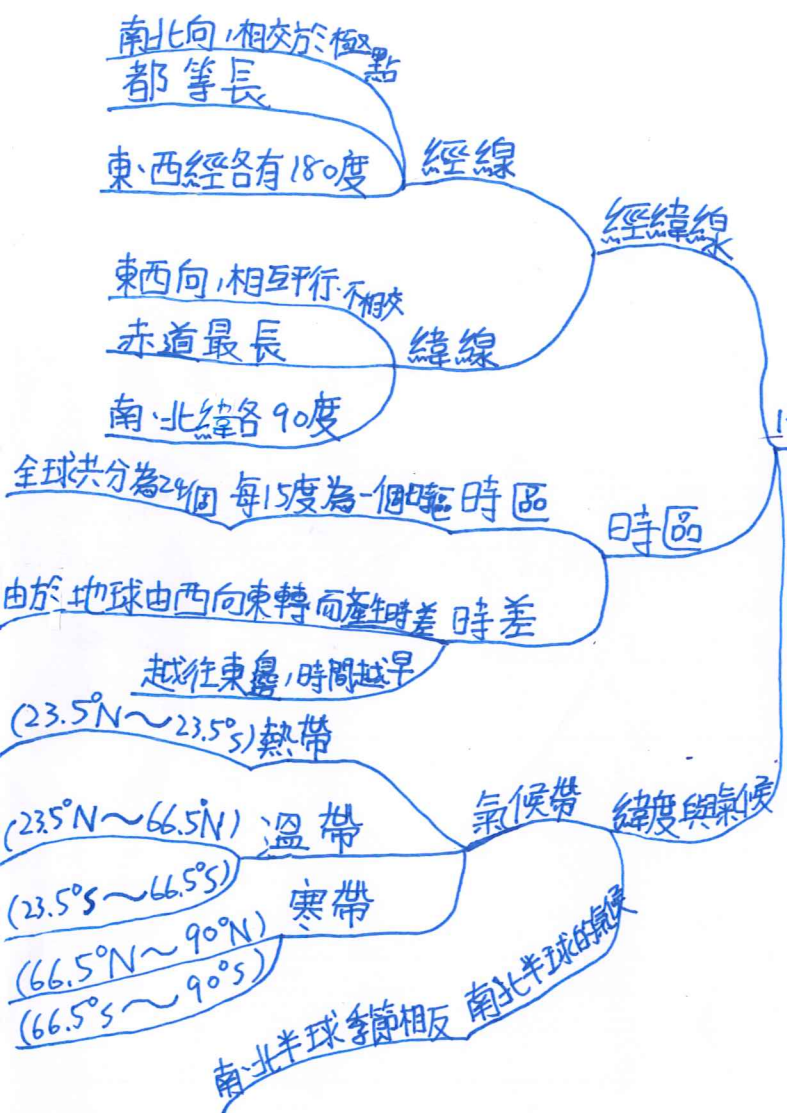 南北向,相交於極點
都等長
東、西經各有180度
經線
經緯線
東西向,相互平行.不相交
赤道最長
緯線
南、北緯各90度
全球共分為24個 每15度為一個時區 時區
時區
由於地球由西向東轉而產生時差 時差
越往東邊,時間越早
(23.5°N～23.5°S)熱帶
(23.5°N～66.5°N) 溫帶
氣候帶
緯度與氣候
(23.5°S～66.5°S)
寒帶
(66.5°N～90°N)
(66.5°S～90°S)
南、北半球季節相反 南北半球的氣候